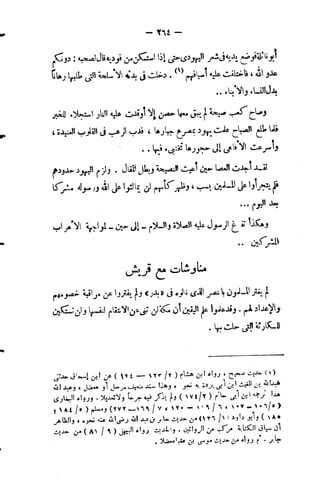 — ٢٦٤ —
أبو نائلة فوضع يديه فى شعر اليهودى حتى إذا استمكن من فوديه قال لصحبه : دونكم
عدو الله ، فاختلفت عليه أسيافهم (١) . دخلت فى بدنه الأسلحة التى طلبها رهانا
بدل النساء والأبناء ..
وصاح كعب صيحة لم يبق معها حصن إلا أوقدت عليه النار استجلاء للخبر
فلما طلع الصباح علمت يهود بمصرع جبارها ، فدب الرعب فى القلوب العنيدة ،
وأسرعت الأفاعى إلى جحورها تختبىء فيها ..
لقد أجدت العصا حين أعيت النصيحة وبطل المقال . ولزم اليهود حدودهم
فلم يتجرأوا على المسلمين بسب ، وظهر كأنهم لن يمالئوا على الله ورسوله مشركا
بعد اليوم ...
وهكذا تفرغ الرسول عليه الصلاة والسلام - إلى حين - لمواجهة الأعراب
المشركين ..
مناوشات مع قريش
لم يفتر المسلمون بالنصر الذى نالوه فى «بدر» ولم يفتروا عن مراقبة خصومهم
والإعداد لهم . وقد علموا علم اليقين أن مكة لن تنى عن الانتقام لنفسها ولن تستكين
للكارثة التى حلت بها .
(١) حديث صحيح ، رواه ابن هشام ( ٢ / ١٢٣ — ١٢٤ ) عن ابن إسحاق حدثنى
عبد الله بن المغيث ابن أبى بردة به نحوه . وهذا سند ضعيف مرسل أو معضل . وعبد الله
هذا ترجمه ابن أبى حاتم ( ٢ / ١٧٤ ) ولم يذكر فيه جرحا ولا تعديلا . ورواه البخارى
ومسلم ( ٥ / ١٨٤ —
١٨٥ ) وأبو داود من حديث جابر بن عبد الله رضى الله عنه نحوه ، والظاهر
أن سياق الكتاب مركب من الروايتين . والحديث رواه البيهقى ( ٩ / ٨١ ) من حديث
جابر . ثم رواه من حديث موسى بن عقبة معضلا .